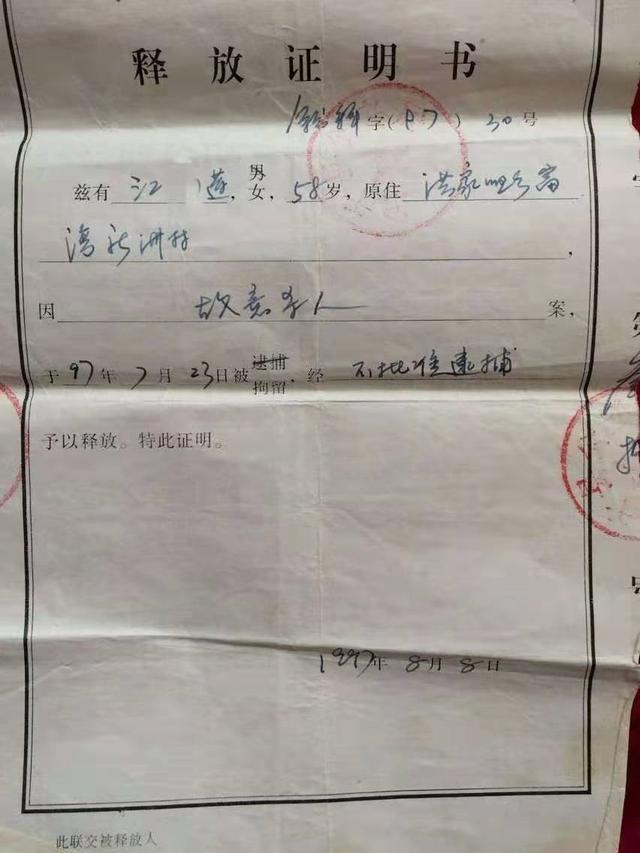 释放证明书
字(97)30号
兹有江莲,男女,58岁,原住洪家咀乡富
湾新洲村,
因故意杀人案,
于97年7月23日被逮捕拘留,经不批准逮捕
予以释放。特此证明。
1997年8月8日
此联交被释放人